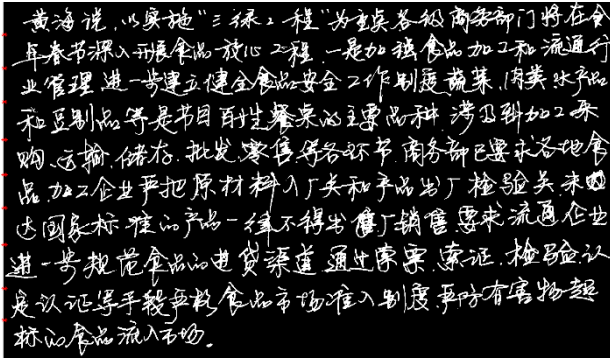 黄海说，以实施“三绿工程”为重点各级商务部门将在今
年春节深入开展食品放心工程.一是加强食品加工和流通行
业管理.进一步建立健全食品安全工作制度蔬菜.肉类水产品
和豆制品等是节日百姓餐桌的主要品种.涉及到加工采
购.运输.储存.批发.零售等各环节.商务部已要求各地食
品.加工企业严把原材料入厂关和产品出厂检验关.未
达国家标准的产品一律不得出厂销售要求流通企业
进一步规范食品的进货渠道.通过索票.索证.检验认
是认证等手段严格食品市场准入制度.严防有害物超
标的食品流入市场。